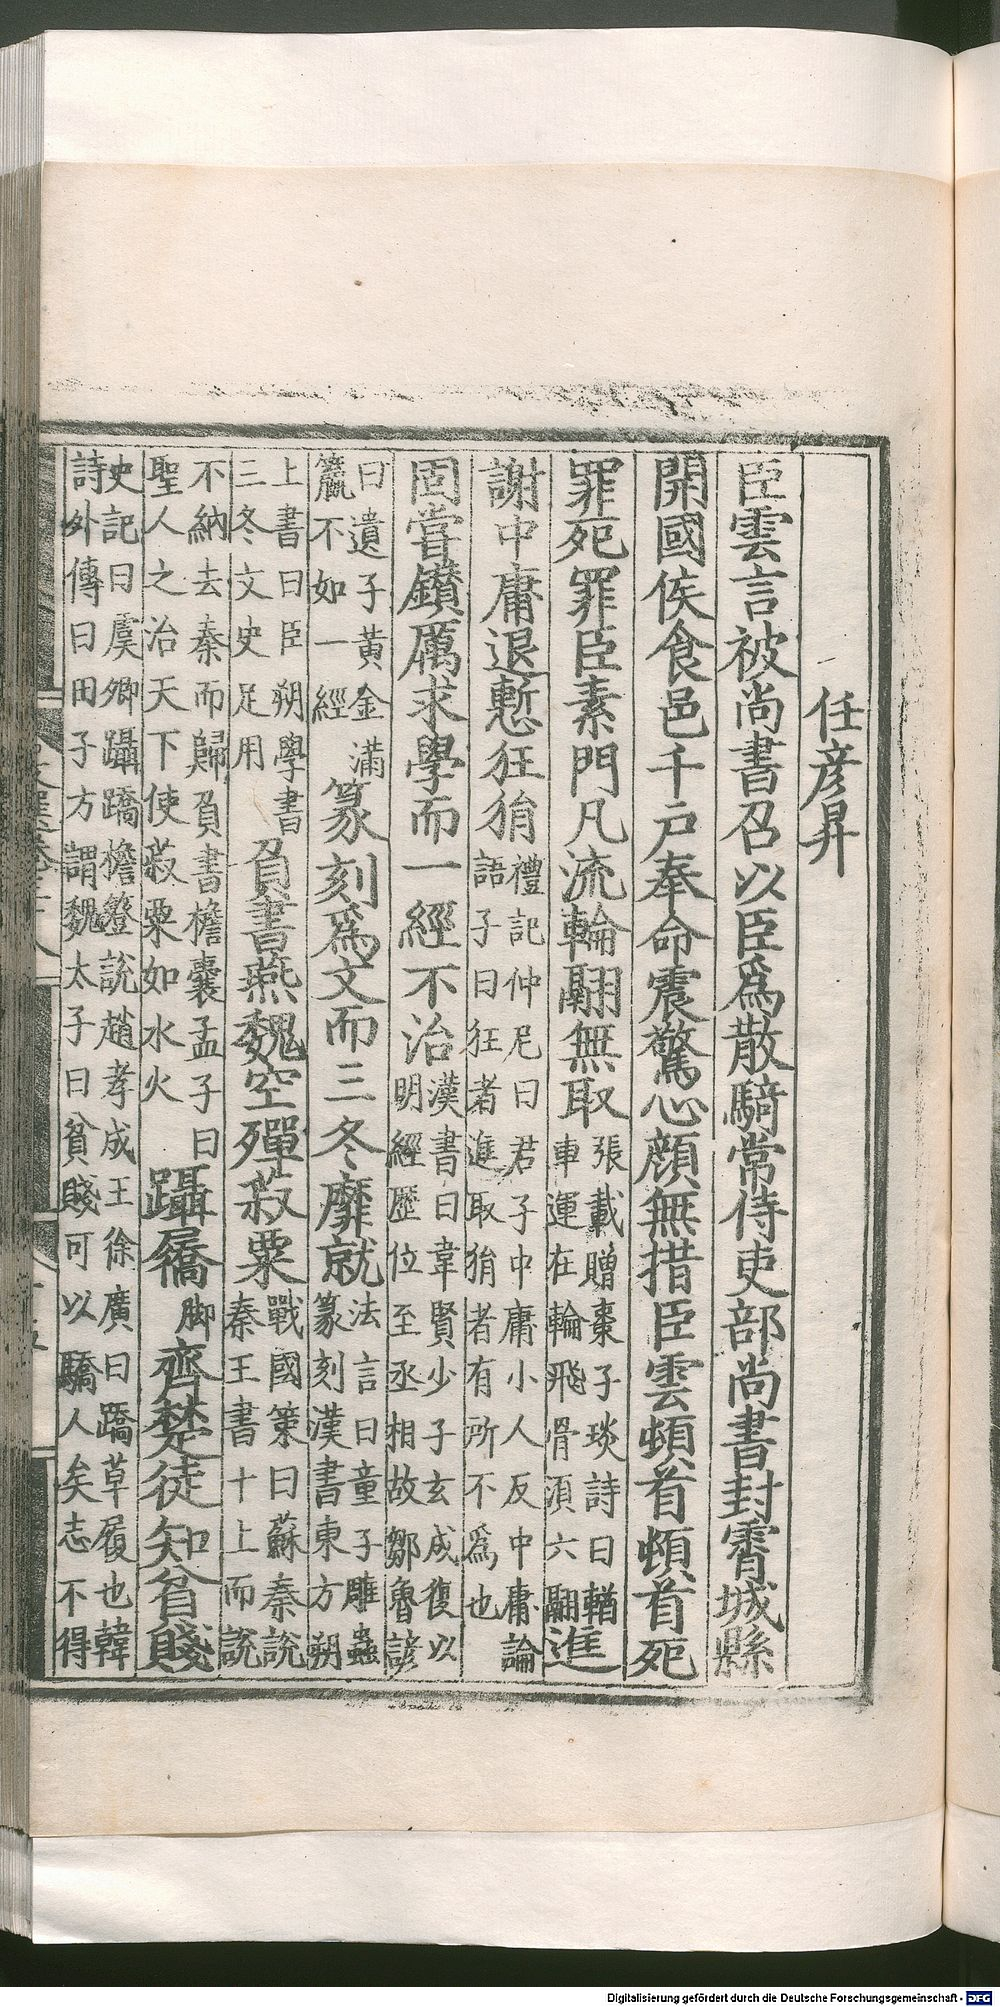 任彦昇
臣雲言被尚書召以臣爲散騎常侍吏部尚書封霄城縣
開國侯食邑千戸奉命震驚心顔無措臣雲頓首頓首死
罪死罪臣素門凡流輪翮無取張載贈棗子琰詩曰輶車運在輪飛骨須六翮進
謝中庸退慙狂狷禮記仲尼曰君子中庸小人反中庸論語子曰狂者進取狷者有所不爲也
固嘗鑽厲求學而一經不治漢書曰韋賢少子玄成復以明經歷位至丞相故鄒魯諺
曰遺子黃金滿籯不如一經篆刻爲文而三冬靡就法言曰童子雕蟲篆刻漢書東方朔
上書曰臣朔學書三冬文史足用負書燕魏空殫菽粟戰國策曰蘇秦說秦王書十上而說
不納去秦而歸負書檐囊孟子曰聖人之治天下使菽粟如水火躡屩脚齊楚徒知口貧賤
史記曰虞卿躡蹻檐簦說趙孝成王徐廣曰蹻草履也韓詩外傳曰田子方謂魏太子曰貧賤可以驕人矣志不得
Digitalisierung gefördert durch die Deutsche Forschungsgemeinschaft - DFG